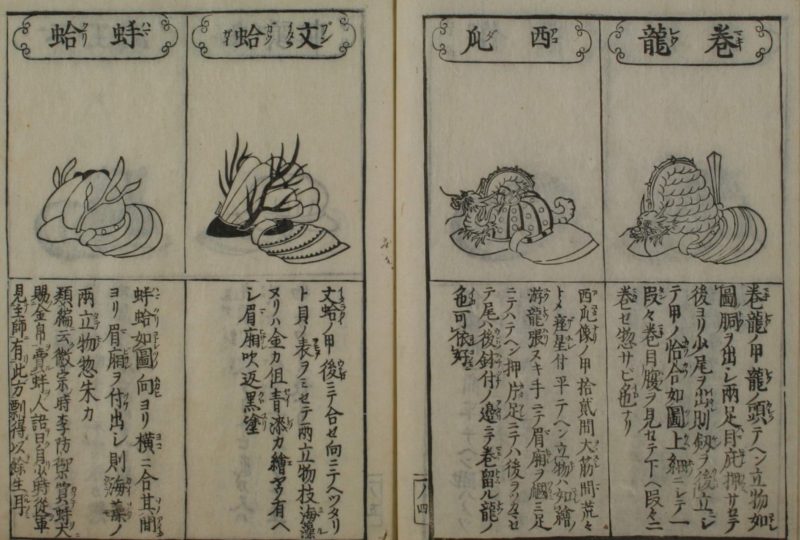 巻龍
巻龍ノ甲龍ノ頭ニテヘン立物如
圖胴ヲ出シ兩足ニ庇撫サセテ
後ヨリ少尾ヲ出則釼ヲ後立シ
テ甲ノ恰合如圖上細ニシテ一
段々巻目腹ヲ見セテ下ヘ段々ニ
巻セ惣サビ色ナリ
西
西 像ノ甲拾貳間大筋間荒々
ト〆 星付平テヘン立物ハ如繪ノ
游龍張スキ手ニテ眉廂ヲ 三足
ニテハテヘン押片足ニテハ後ヲツカマセ
テ尾ハ後錣付ノ邉ニテ巻留ル龍ノ
色可依好
八ノ四
文蛤
文蛤ノ甲後ニテ合セ向ニテヘツタリ
ト貝ノ表ヲミセテ兩立物枝海藻
ヌリハ金カ但青漆カ繪ヤウ有ヘ
シ眉廂吹返黒塗
蚌蛤
蚌蛤如圖向ヨリ横ニ合其間
ヨリ眉廂ヲ付出シ則海藻ノ
兩立物惣朱カ
類編云徽宗時李防禦買蚌大
賜金帛賣蚌人語曰自少時從軍
見主帥有此方剽得以餘生耳